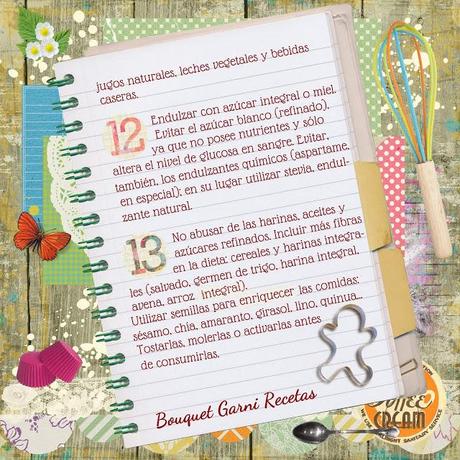 jugos naturales, leches vegetales y bebidas
caseras.
12 Endulzar con azúcar integral o miel.
Evitar el azúcar blanco (refinado),
ya que no posee nutrientes y sólo
altera el nivel de glucosa en sangre. Evitar,
también, los endulzantes químicos (aspartame,
en especial); en su lugar utilizar stevia, endul-
zante natural.
13 No abusar de las harinas, aceites y
azúcares refinados. Incluir más fibras
en la dieta: cereales y harinas integra-
les (salvado, germen de trigo, harina integral,
avena, arroz integral).
Utilizar semillas para enriquecer las comidas:
sésamo, chía, amaranto, girasol, lino, quinua...
Tostarlas, molerlas o activarlas antes
de consumirlas.
Bouquet Garni Recetas
Coffee
CREAM